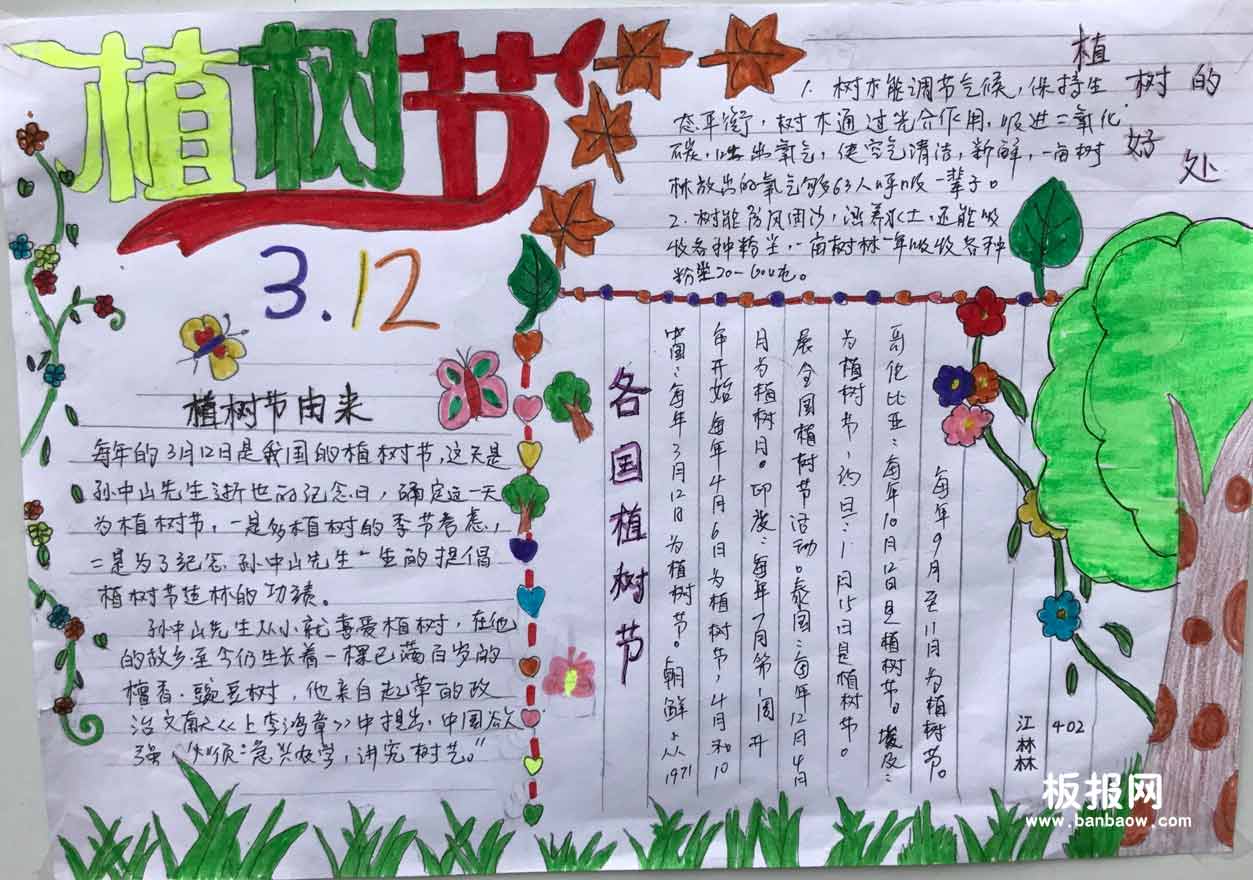 植树节
3.12
植树节由来
每年的3月12日是我国的植树节,这天是
孙中山先生逝世的纪念日,确定这一天
为植树节,一是多植树的季节考虑,
二是为了纪念孙中山先生一生的提倡
植树节造林的功绩。
孙中山先生从小就喜爱植树,在他
的故乡至今仍生长着一棵已满百岁的
檀香豌豆树,他亲自起草的政
治文献《上李鸿章》中提出,中国欲
强,“须急兴农学,讲究树艺。”
植树的好处
1. 树木能调节气候,保持生
态平衡,树木通过光合作用,吸进二氧化
碳,吐出氧气,使空气清洁,新鲜,一亩树
林放出的氧气够63人呼吸一辈子。
2. 树能防风固沙,涵养水土,还能吸
收各种粉尘,一亩树林一年吸收各种
粉尘20-60吨。
各国植树节
中国:每年3月12日为植树节。朝鲜:从1971
年开始每年4月6日为植树节,4月和10
月为植树月。印度:每年7月第一周开
展全国植树节活动。泰国:每年12月4月
为植树节,约旦:1月15日是植树节。
哥伦比亚:每年10月12日是植树节。埃及:
每年9月至11月为植树节。
江林林
402
板报网
www.banbaow.com